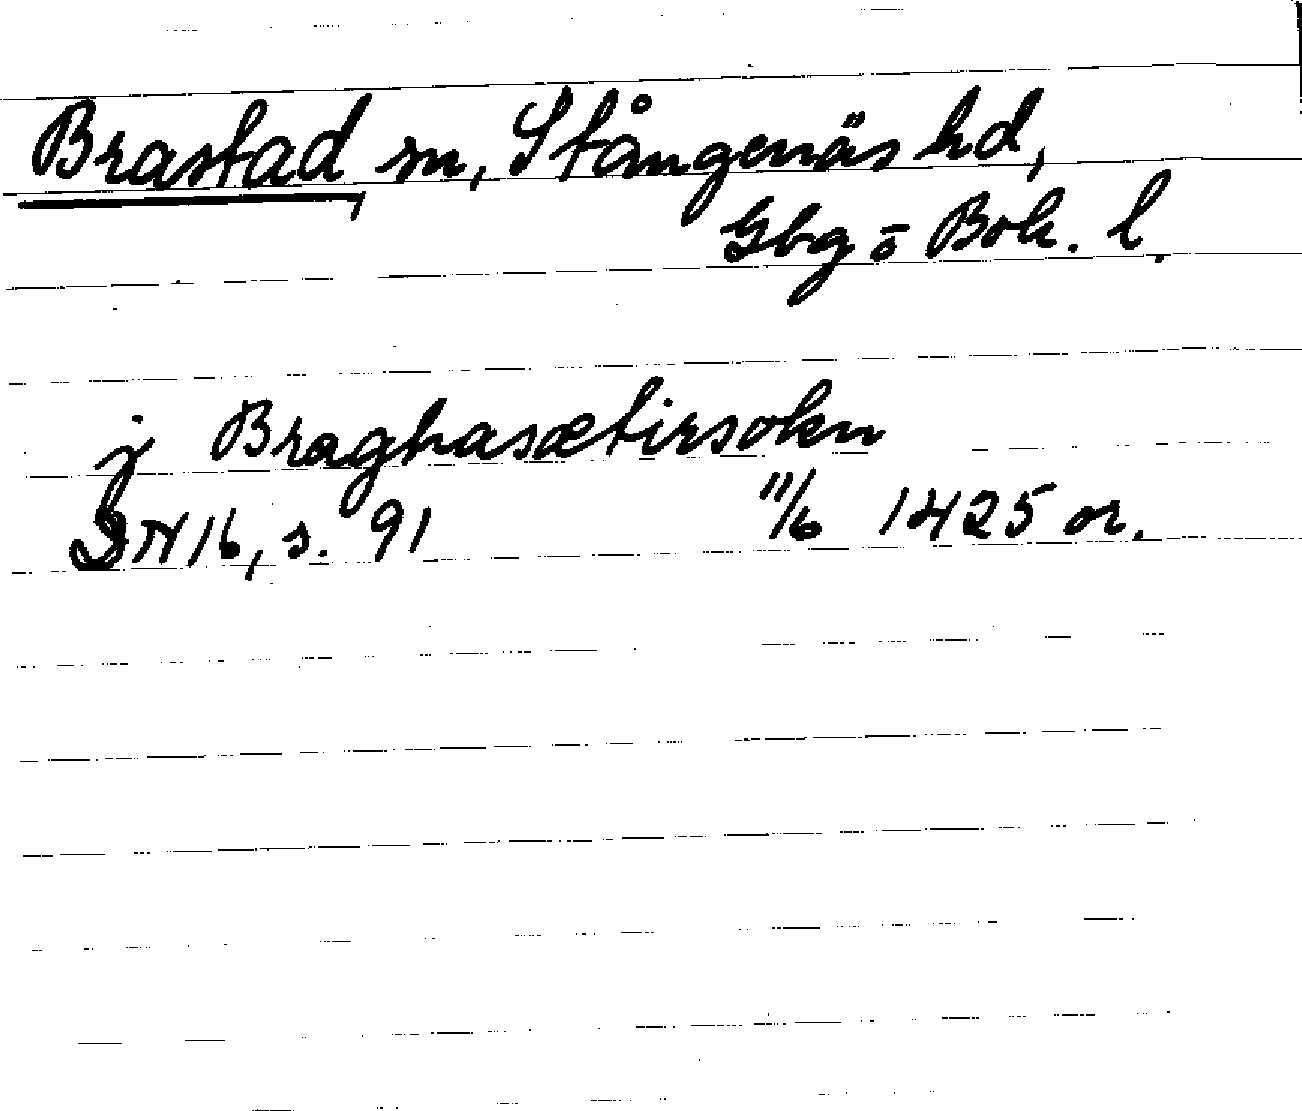 Brastad, sn, Stångenäs hd,
Gbg o Boh. l.
j Braghasætirsokn
DN 16, s. 91 11/6 1425 or.